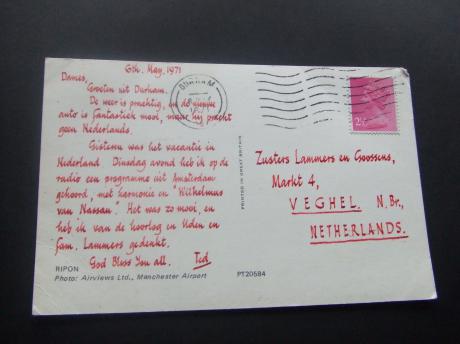 6th. May, 1971
Dames,
Groeten uit Durham.
De weer is prachtig, en de nieuwe
auto is fantastiek mooi, maar hij pracht
geen Nederlands.
Gisteren was het vacantie in
Nederland. Dinsdag avond heb ik op de
radio een programme uit Amsterdam
gehoord, met harmonie en "Wilhelmus
van Nassau". Het was zo mooi, en
heb ik van de hoorlog en Uden en
fam. Lammers gedenkt.
God Bless You all. Ted.
RIPON
Photo: Airviews Ltd., Manchester Airport
PT20584
PRINTED IN GREAT BRITAIN
DURHAM
2½
Zusters Lammers en Goossens,
Markt 4,
VEGHEL. N. Br.,
NETHERLANDS.